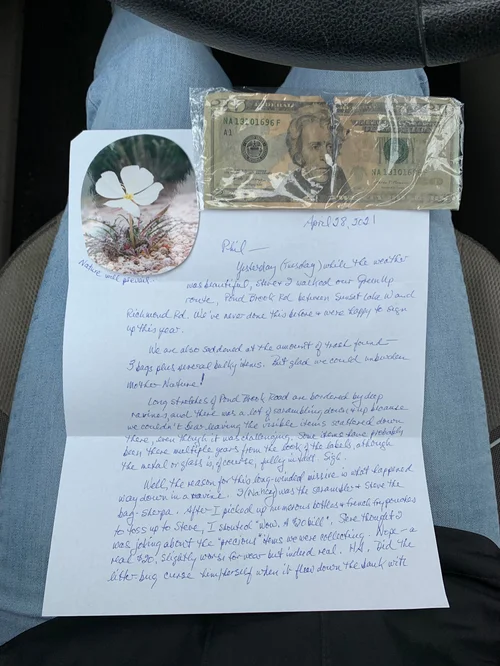 NA 13101696 F
A1
NA 13101696
Nature will prevail
April 28, 2021
Phil —
Yesterday (Tuesday) while the weather
was beautiful, Steve & I walked our GreenUp
route, Pond Brook Rd between Sunset Lake Rd and
Richmond Rd. We've never done this before & were happy to sign
up this year.
We are also saddened at the amount of trash found —
3 bags plus several bulky items. But glad we could unburden
Mother Nature!
Long stretches of Pond Brook Road are bordered by deep
ravines, and there was a lot of scrambling down & up because
we couldn't bear leaving the visible items scattered down
there, even though it was challenging. Some items have probably
been there multiple years from the look of the labels, although
the metal or glass is, of course, fully intact. Sigh.
Well, the reason for this long-winded missive is what happened
way down in a ravine. I (Nancy) was the scrambler & Steve the
bag-Sherpa. After I picked up numerous bottles &
to toss up to Steve, I shouted "Wow. A $20 bill". Steve thought I
was joking about the "precious" items we were collecting. Nope — a
real $20, slightly worse for wear but indeed real. HA. Did the
litter-bug curse him/herself when it flew down the bank with